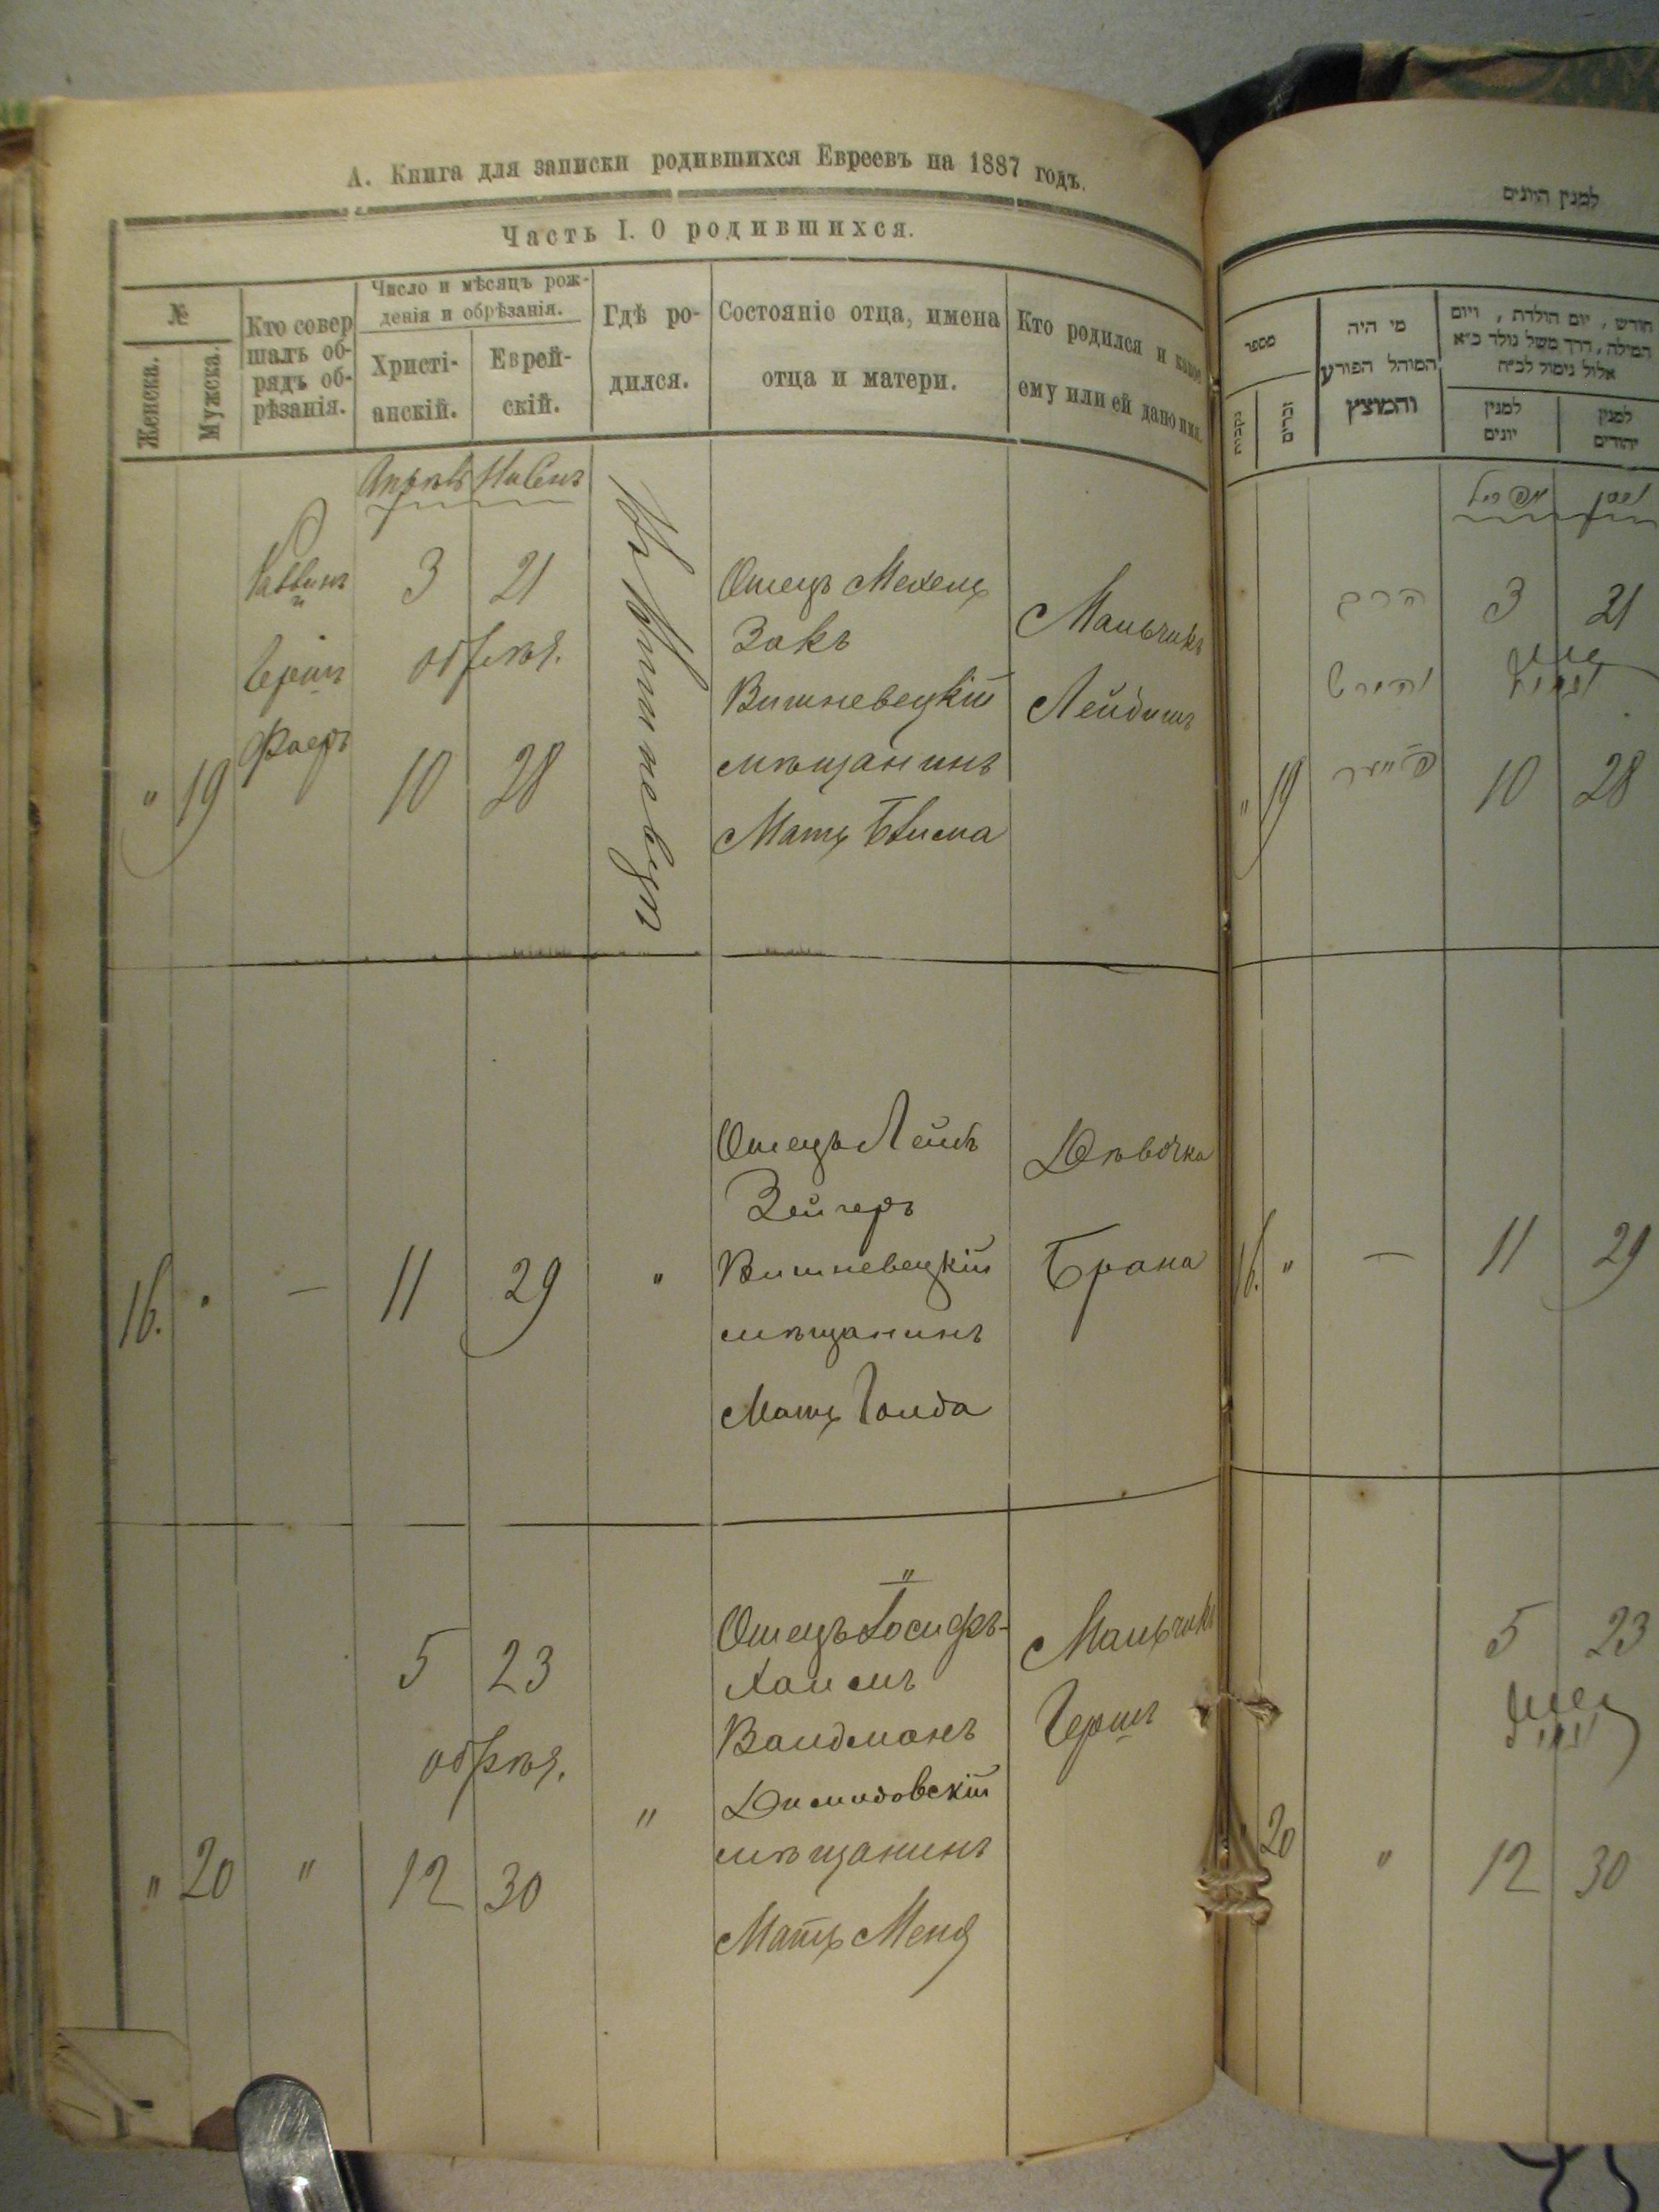 А. Книга для записки родившихся Евреевъ на 1887 годъ.
Часть I. О родившихся.
№
Женска.
Мужска.
Кто совер
шалъ об-
рядъ об-
рѣзанія.
Число и мѣсяцъ рож-
денія и обрѣзанія.
Христі-
анскій.
Еврей-
скій.
Гдѣ ро-
дился.
Состояніе отца, имена
отца и матери.
Кто родился и какое
ему или ей дано имя.
Апрѣль Нисенъ
" 19
Раввинъ
и
Гершъ
Фаеръ
3 21
обрѣз.
10 28
Въ Вишневцѣ
Отецъ Мехель
Закъ
Вишневецкій
мѣщанинъ
Мать
Мальчикъ
16. " — 11 29 "
Отецъ Лейбъ
Зейгеръ
Вишневецкій
мѣщанинъ
Мать Голда
Дѣвочка
Брана
5 23
обрѣз.
" 20 " 12 30 "
"
Отецъ Іосифъ-
Хаимъ
Валдманъ
мѣщанинъ
Мать Меня
Мальчикъ
Гершъ
למנין היונים
מספר
נקבות
זכרים
מי היה
המוהל הפורע
והמוצץ
חודש, יום הולדת, ויום
המילה, דרך משל נולד כ״א
אלול נימול לכ״ח
למנין
יונים
למנין
יהודים
אפריל ניסן
" 19
הרב
והירש
פייער
3 21
10 28
16. " — 11 29
5 23
20 " 12 30